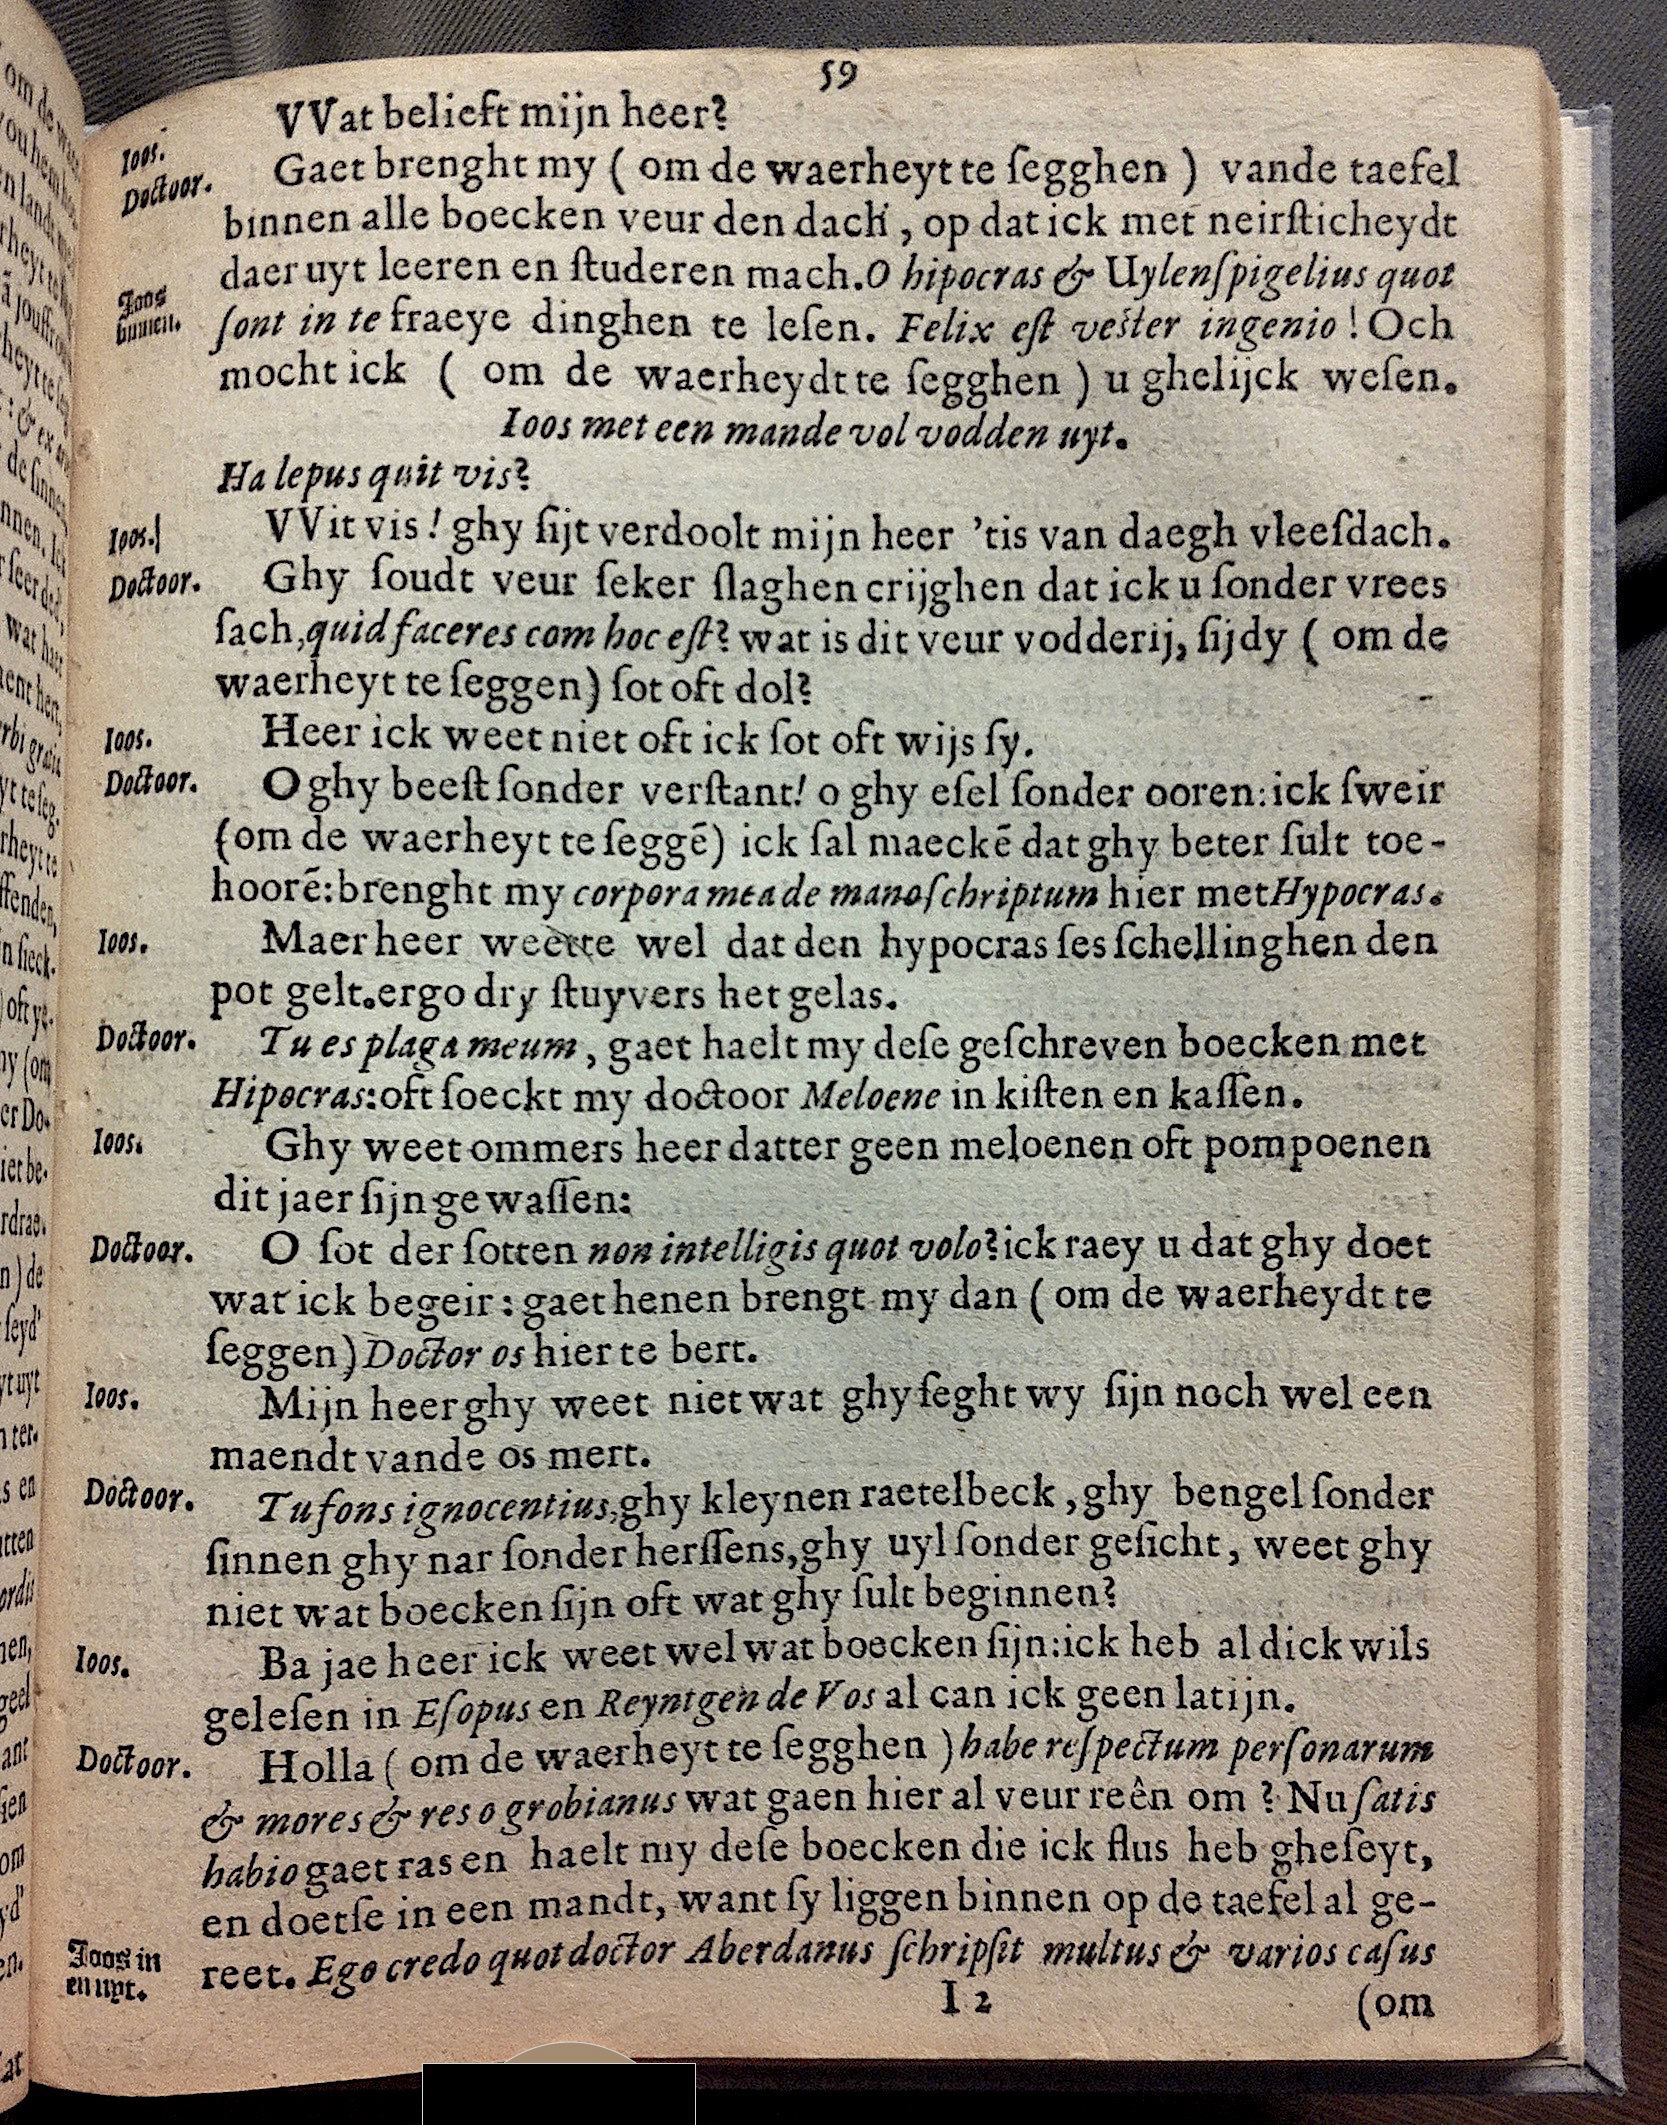 59
Ioos. VVat belieft mijn heer?
Doctoor. Gaet brenght my ( om de waerheyt te ſegghen ) vande taefel
binnen alle boecken veur den dach, op dat ick met neirſticheydt
daer uyt leeren en ſtuderen mach. O hipocras & Uylenſpigelius quot
Joos binnen. ſont in te fraeye dinghen te leſen. Felix eſt veſter ingenio! Och
mocht ick ( om de waerheydt te ſegghen ) u ghelijck weſen.
Ioos met een mande vol vodden uyt.
Ha lepus quit vis?
Ioos. VVit vis! ghy ſijt verdoolt mijn heer 'tis van daegh vleeſdach.
Doctoor. Ghy ſoudt veur ſeker ſlaghen crijghen dat ick u ſonder vrees
ſach, quid faceres com hoc eſt? wat is dit veur vodderij, ſijdy ( om de
waerheyt te ſeggen) ſot oft dol?
Ioos. Heer ick weet niet oft ick ſot oft wijs ſy.
Doctoor. O ghy beeſt ſonder verſtant! o ghy eſel ſonder ooren: ick ſweir
(om de waerheyt te ſeggē) ick ſal maeckē dat ghy beter ſult toe-
hoorē: brenght my corpora mea de manoſchriptum hier met Hypocras.
Ioos. Maer heer weette wel dat den hypocras ſes ſchellinghen den
pot gelt. ergo dry ſtuyvers het gelas.
Doctoor. Tu es plaga meum, gaet haelt my deſe geſchreven boecken met
Hipocras: oft ſoeckt my doctoor Meloene in kiſten en kaſſen.
Ioos. Ghy weet ommers heer datter geen meloenen oft pompoenen
dit jaer ſijn gewaſſen:
Doctoor. O ſot der ſotten non intelligis quot volo? ick raey u dat ghy doet
wat ick begeir: gaet henen brengt my dan ( om de waerheydt te
ſeggen) Doctor os hier te bert.
Ioos. Mijn heer ghy weet niet wat ghy ſeght wy ſijn noch wel een
maendt vande os mert.
Doctoor. Tu fons ignocentius, ghy kleynen raetelbeck, ghy bengel ſonder
ſinnen ghy nar ſonder herſſens, ghy uyl ſonder geſicht, weet ghy
niet wat boecken ſijn oft wat ghy ſult beginnen?
Ioos. Ba jae heer ick weet wel wat boecken ſijn: ick heb al dick wils
geleſen in Eſopus en Reyntgen de Vos al can ick geen latijn.
Doctoor. Holla ( om de waerheyt te ſegghen ) habe reſpectum perſonarum
& mores & res o grobianus wat gaen hier al veur reên om? Nu ſatis
habio gaet ras en haelt my deſe boecken die ick flus heb gheſeyt,
en doetſe in een mandt, want ſy liggen binnen op de taefel al ge-
Joos in en uyt. reet. Ego credo quot doctor Aberdanus ſchripſit multus & varios caſus
I 2 (om